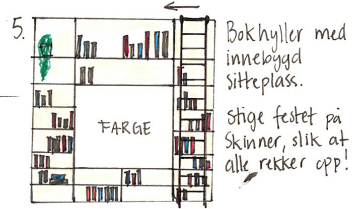 5.
Bokhyller med
innebygd
sitteplass.
FARGE
Stige festet på
skinner, slik at
alle rekker opp!